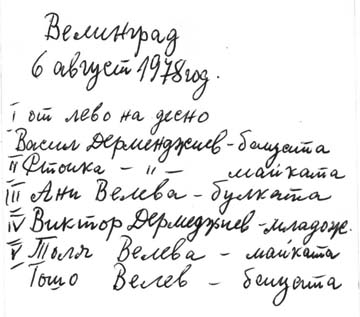 Велинград
6 август 1978год.
I от лево на десно
Васил Дерменджиев - бащата
II Стоика - " - майката
III Ани Велева - булката
IV Виктор Дермеджиев - младож.
V Толя Велева - майката
Тошо Велев - бащата